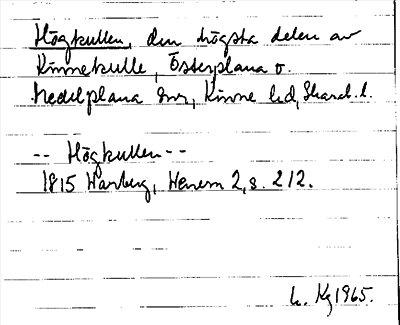 Högkullen, den högsta delen av
Kinnekulle, Österplana o.
Medelplana snr, Kinne hd, Skarab. l.
-- Högkullen --
1815 Warberg, Wenern 2, s. 212.
L. Kg 1965.